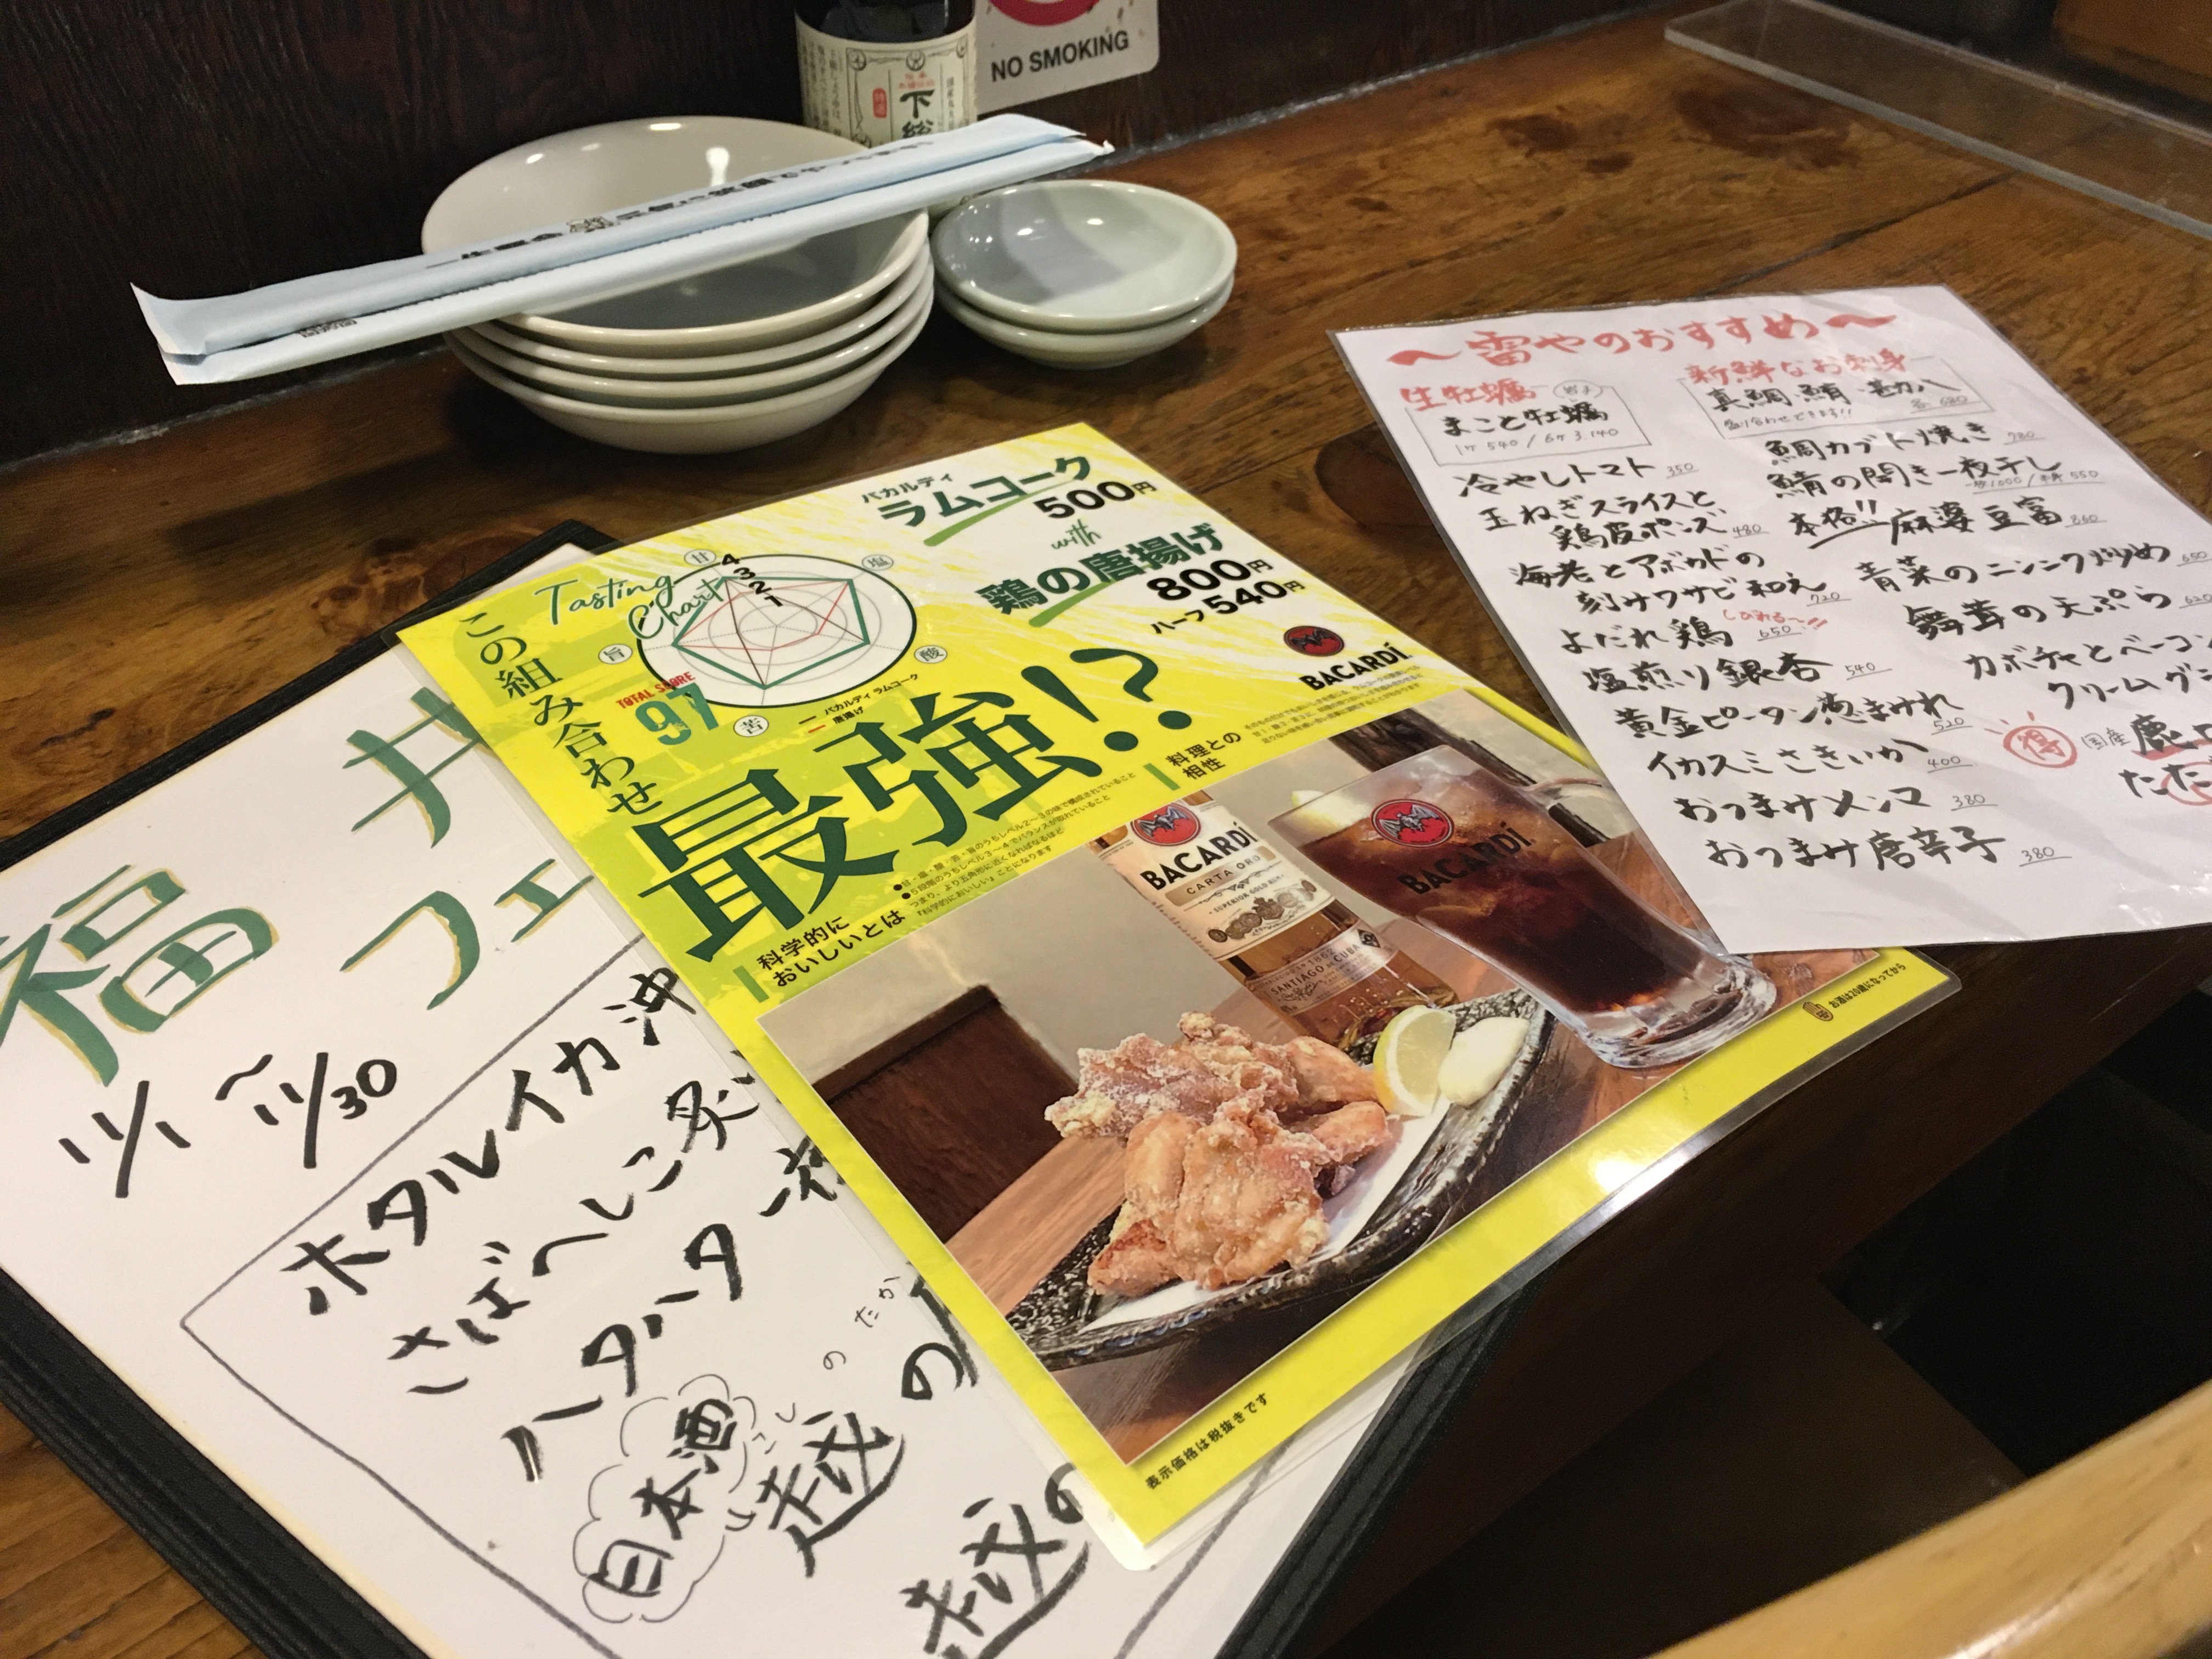 NO SMOKING
下総
バカルディ
ラムコーク
500円
with
鶏の唐揚げ
800円
ハーフ540円
BACARDÍ
Tasting
Chart
甘
塩
酸
苦
旨
4
3
2
1
TOTAL SCORE
97
バカルディ ラムコーク
唐揚げ
この組み合わせ
最強!?
料理との
相性
科学的に
おいしいとは
BACARDÍ
CARTA ORO
SUPERIOR GOLD RUM
SANTIAGO DE CUBA
BACARDÍ
お酒は20歳になってから
表示価格は税抜きです
福井
フェ
11/1 〜 11/30
ホタルイカ沖
さばへしこ炙
ハタハタ一夜
日本酒
越の
越の
〜雷やのおすすめ〜
生牡蠣
まこと牡蠣
1ケ 540 / 6ケ 3,140
新鮮なお刺身
真鯛・鯖・甚八
各 680
盛り合わせできます!!
冷やしトマト 350
玉ねぎスライスと
鶏皮ポンズ 480
海老とアボカドの
刻みワサビ和え 720
よだれ鶏 650
しびれる〜!!
塩煎り銀杏 540
黄金ピータン葱まみれ 520
イカスミさきいか 400
おつまみメンマ 380
おつまみ唐辛子 380
鯛カブト焼き 780
鯖の開き一夜干し
一枚1000 / 半身 550
本格!! 麻婆豆富 860
青菜のニンニク炒め 650
舞茸の天ぷら 620
カボチャとベーコン
クリームグラ
得
国産
鹿
たた